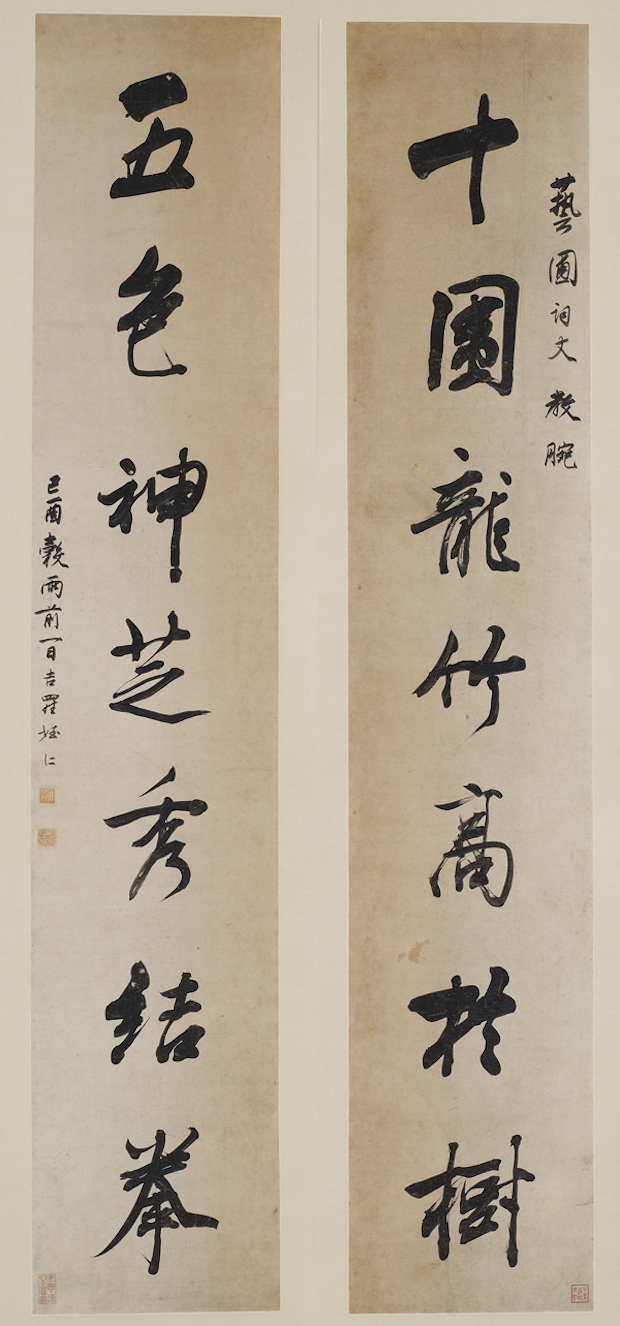 藝圃詞丈教腕
十圍龍竹高於樹
五色神芝秀結拳
己酉穀雨前一日吉羅居仁